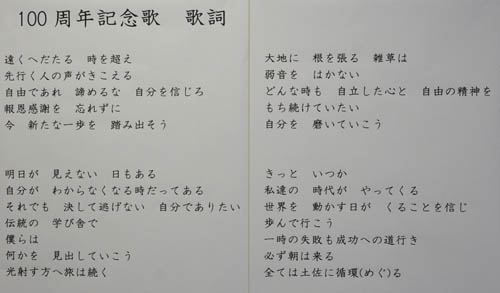 100周年記念歌　歌詞
遠くへだたる　時を超え
先行く人の声がきこえる
自由であれ　諦めるな　自分を信じろ
報恩感謝を　忘れずに
今　新たな一歩を　踏み出そう
明日が　見えない　日もある
自分が　わからなくなる時だってある
それでも　決して逃げない　自分でありたい
伝統の　学び舎で
僕らは
何かを　見出していこう
光射す方へ旅は続く
大地に　根を張る　雑草は
弱音を　はかない
どんな時も　自立した心と　自由の精神を
もち続けていたい
自分を　磨いていこう
きっと　いつか
私達の　時代が　やってくる
世界を　動かす日が　くることを信じ
歩んで行こう
一時の失敗も成功への道行き
必ず朝は来る
全ては土佐に循環(めぐ)る